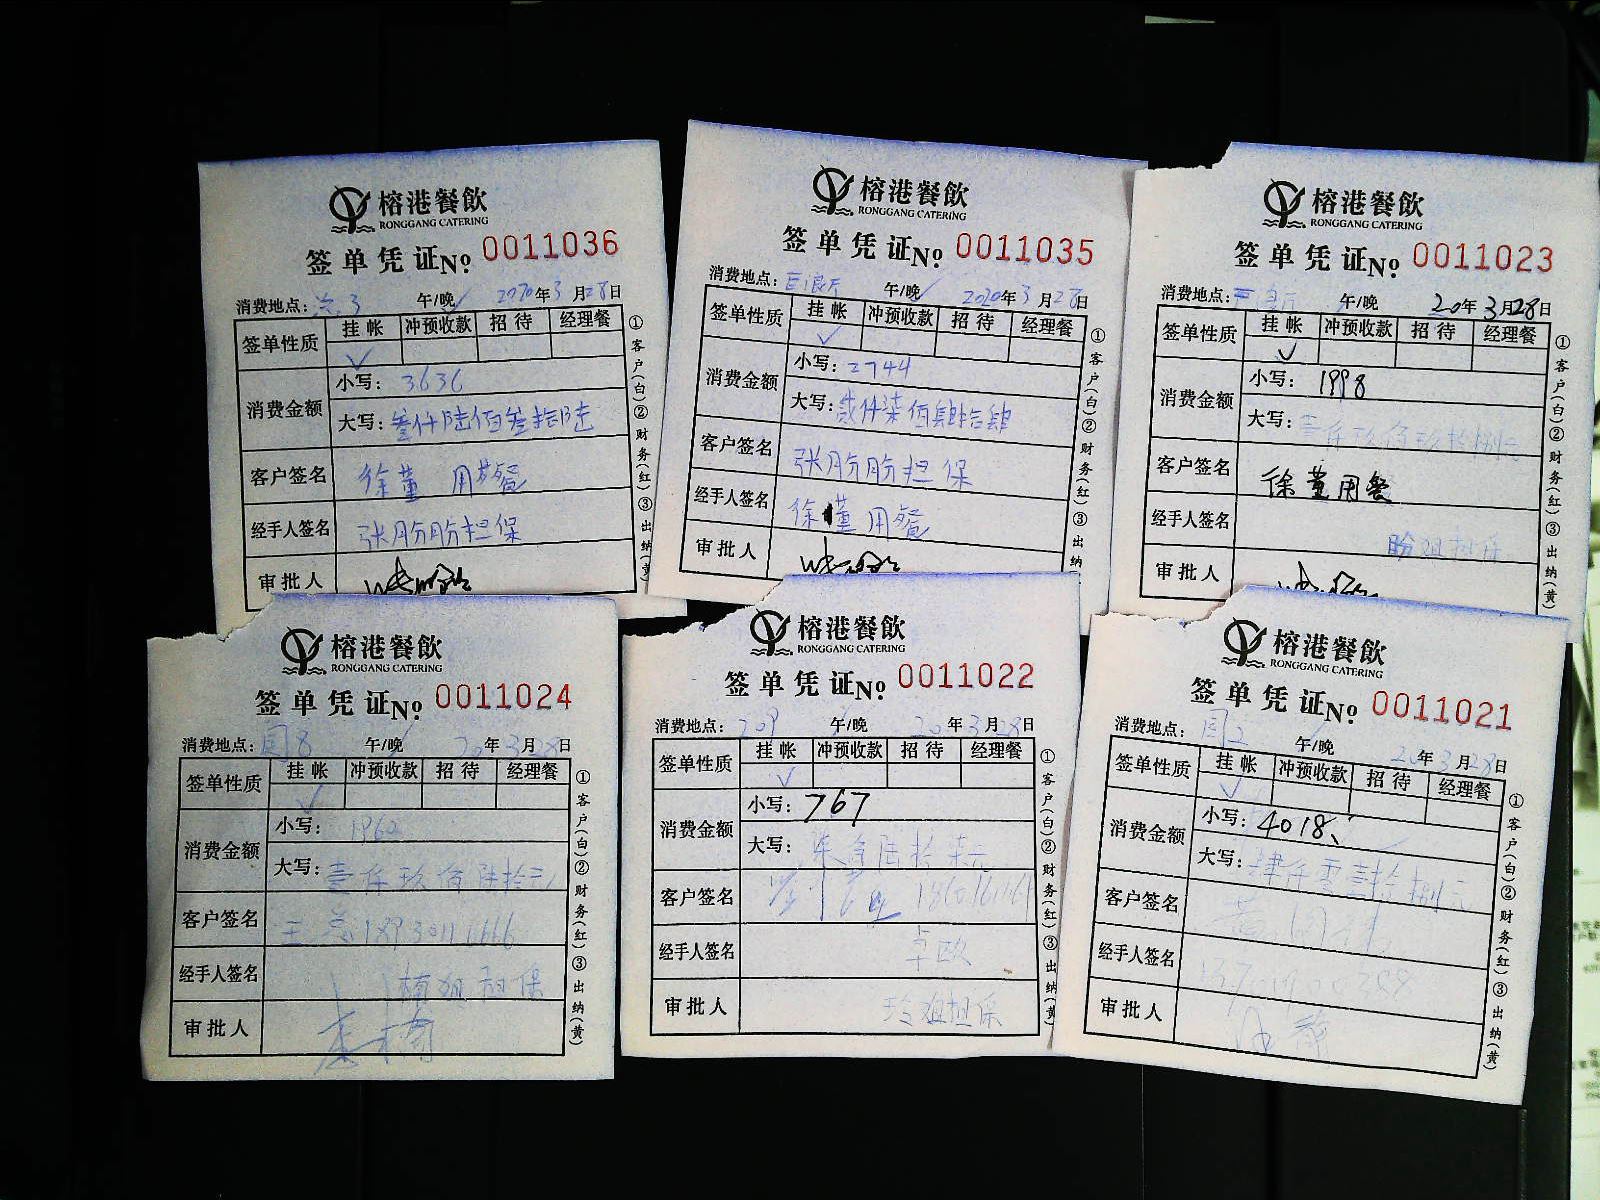 榕港餐飲
RONGGANG CATERING
签单凭证No 0011036
消费地点: 3 午/晚 2020年3月28日
签单性质 挂帐 冲预收款 招待 经理餐
消费金额 小写: 3636
大写: 叁仟陆佰叁拾陆
客户签名 徐董 用餐
经手人签名 张盼盼担保
审批人
①客户(白)②财务(红)③出纳(黄)
榕港餐飲
RONGGANG CATERING
签单凭证No 0011035
消费地点: 午/晚 2020年3月28日
签单性质 挂帐 冲预收款 招待 经理餐
消费金额 小写: 2744
大写: 贰仟柒佰肆拾肆
客户签名 张盼盼担保
经手人签名 徐董用餐
审批人
①客户(白)②财务(红)③出纳(黄)
榕港餐飲
RONGGANG CATERING
签单凭证No 0011023
消费地点: 午/晚 20年3月28日
签单性质 挂帐 冲预收款 招待 经理餐
消费金额 小写: 1998
大写: 壹仟玖佰玖拾捌元
客户签名 徐董用餐
经手人签名 盼姐担保
审批人
①客户(白)②财务(红)③出纳(黄)
榕港餐飲
RONGGANG CATERING
签单凭证No 0011024
消费地点: 8 午/晚 20年3月28日
签单性质 挂帐 冲预收款 招待 经理餐
消费金额 小写: 1960
大写: 壹仟玖佰陆拾元
客户签名 王总
经手人签名 楠姐担保
审批人 李楠
①客户(白)②财务(红)③出纳(黄)
榕港餐飲
RONGGANG CATERING
签单凭证No 0011022
消费地点: 209 午/晚 20年3月28日
签单性质 挂帐 冲预收款 招待 经理餐
消费金额 小写: 767
大写: 柒佰陆拾柒元
客户签名
经手人签名 卓欧
审批人 玲姐担保
①客户(白)②财务(红)③出纳(黄)
榕港餐飲
RONGGANG CATERING
签单凭证No 0011021
消费地点: 2 午/晚 20年3月28日
签单性质 挂帐 冲预收款 招待 经理餐
消费金额 小写: 4018
大写: 肆仟零壹拾捌元
客户签名
经手人签名
审批人
①客户(白)②财务(红)③出纳(黄)